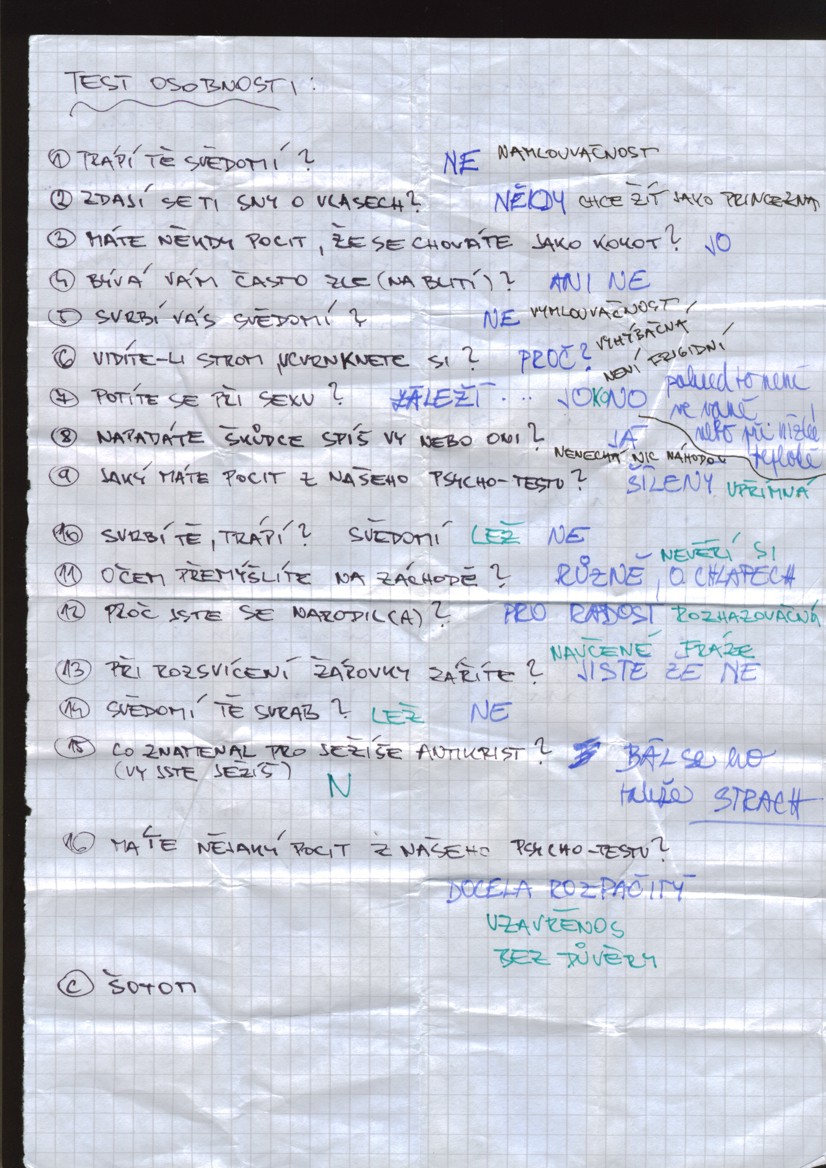 TEST OSOBNOSTI:
① TRÁPÍ TĚ SVĚDOMÍ? NE NAMLOUVAČNOST
② ZDAJÍ SE TI SNY O VLASECH? NĚKDY CHCE ŽÍT JAKO PRINCEZNA
③ MÁTE NĚKDY POCIT, ŽE SE CHOVÁTE JAKO KOKOT? JO
④ BÝVÁ VÁM ČASTO ZLE (NA BLITÍ)? ANI NE
⑤ SVRBÍ VÁS SVĚDOMÍ? NE VYMLOUVAČNOST
VYHÝBAČNÁ
⑥ VIDÍTE-LI STROM, UCVRNKNETE SI? PROČ? NENÍ FRIGIDNÍ
⑦ POTÍTE SE PŘI SEXU? ZÁLEŽÍ... JOKONO pokud to není
ve vaně
nebo při nízké
teplotě
⑧ NAPADÁTE ŠKŮDCE SPÍŠ VY NEBO ONI? JÁ
NENECHÁ NIC NÁHODOU
⑨ JAKÝ MÁTE POCIT Z NAŠEHO PSYCHO-TESTU? ŠÍLENÝ UPŘÍMNÁ
⑩ SVRBÍ TĚ, TRÁPÍ? SVĚDOMÍ LEŽ NE
NEVĚŘÍ SI
⑪ O ČEM PŘEMÝŠLÍTE NA ZÁCHODĚ? RŮZNĚ, O CHLAPECH
⑫ PROČ JSTE SE NARODIL(A)? PRO RADOST ROZHAZOVAČNÁ
NAUČENÉ FRÁZE
⑬ PŘI ROZSVÍCENÍ ŽÁROVKY ZÁŘÍTE? JISTE ZE NE
⑭ SVĚDOMÍ TĚ SVRAB? LEŽ NE
⑮ CO ZNAMENAL PRO JEŽÍŠE ANTIKRIST? BÁL se ho
(VY JSTE JEŽÍŠ) N
takže STRACH
⑯ MÁTE NĚJAKÝ POCIT Z NAŠEHO PSYCHO-TESTU?
DOCELA ROZPAČITÝ
UZAVŘENOS
BEZ DŮVĚRY
© ŠOTOM